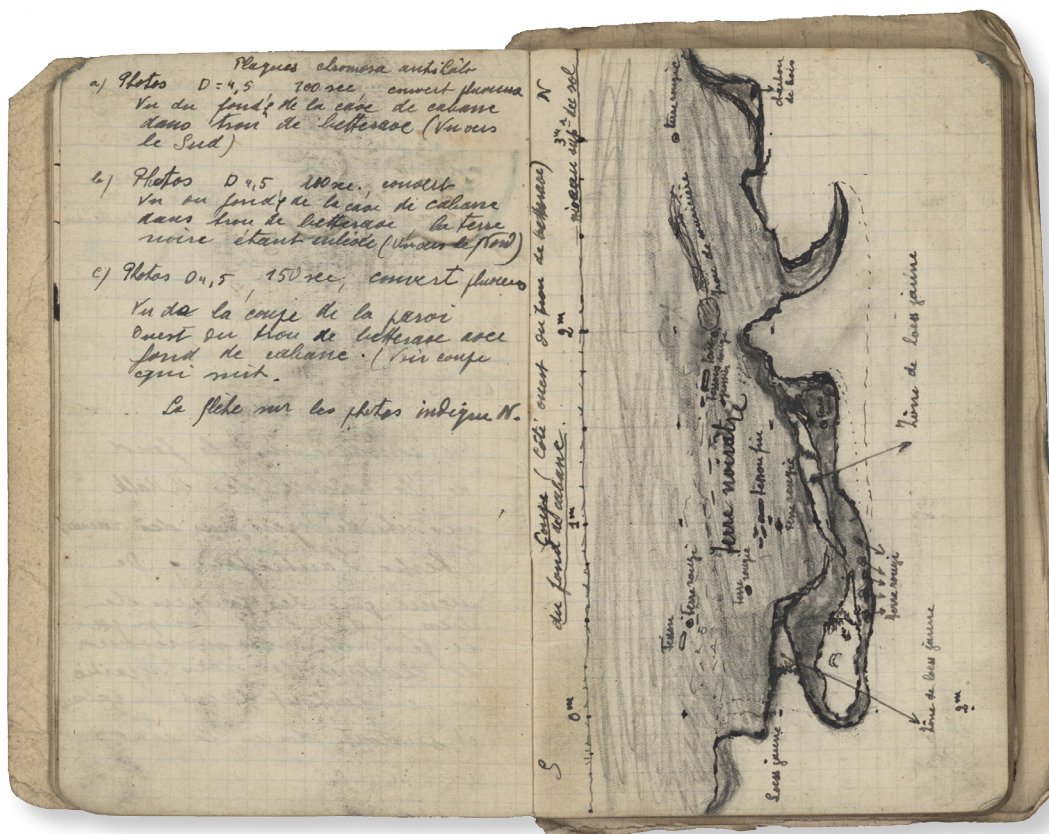 Plaques chromosa antihalo
a) Photos D=4,5 100 sec, couvert pluvieux
Vu du fond de la cave de cabane
dans trou de betterave (Vu vers
le Sud)
b) Photos D 4,5 200 sec. couvert
Vu du fond de la cave de cabane
dans trou de betterave la terre
noire étant enlevée (Vu vers le Nord)
c) Photos D 4,5, 150 sec, couvert pluvieux
Vu de la coupe de la paroi
Ouest du trou de betterave avec
fond de cabane. (Voir coupe
qui suit.
La flêche sur les photos indique N.
Coupe (Côté ouest du trou de betterave)
du fond de cabane.
S 0m 1m 2m 3m N
niveau supr du sol
terre rougie
charbon
de bois
Terre noirâtre
tesson fin
terre rougie
terre rougie
terre rougie
terre rougie
Zône de loess jaune
Zône de loess jaune
Loess jaune
2m